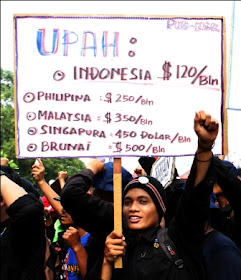 UPAH :
INDONESIA $120/Bln
PHILIPINA : $250/Bln
MALAYSIA : $350/Bln
SINGAPURA : 450 DOLAR/Bln
BRUNAI : $500/Bln